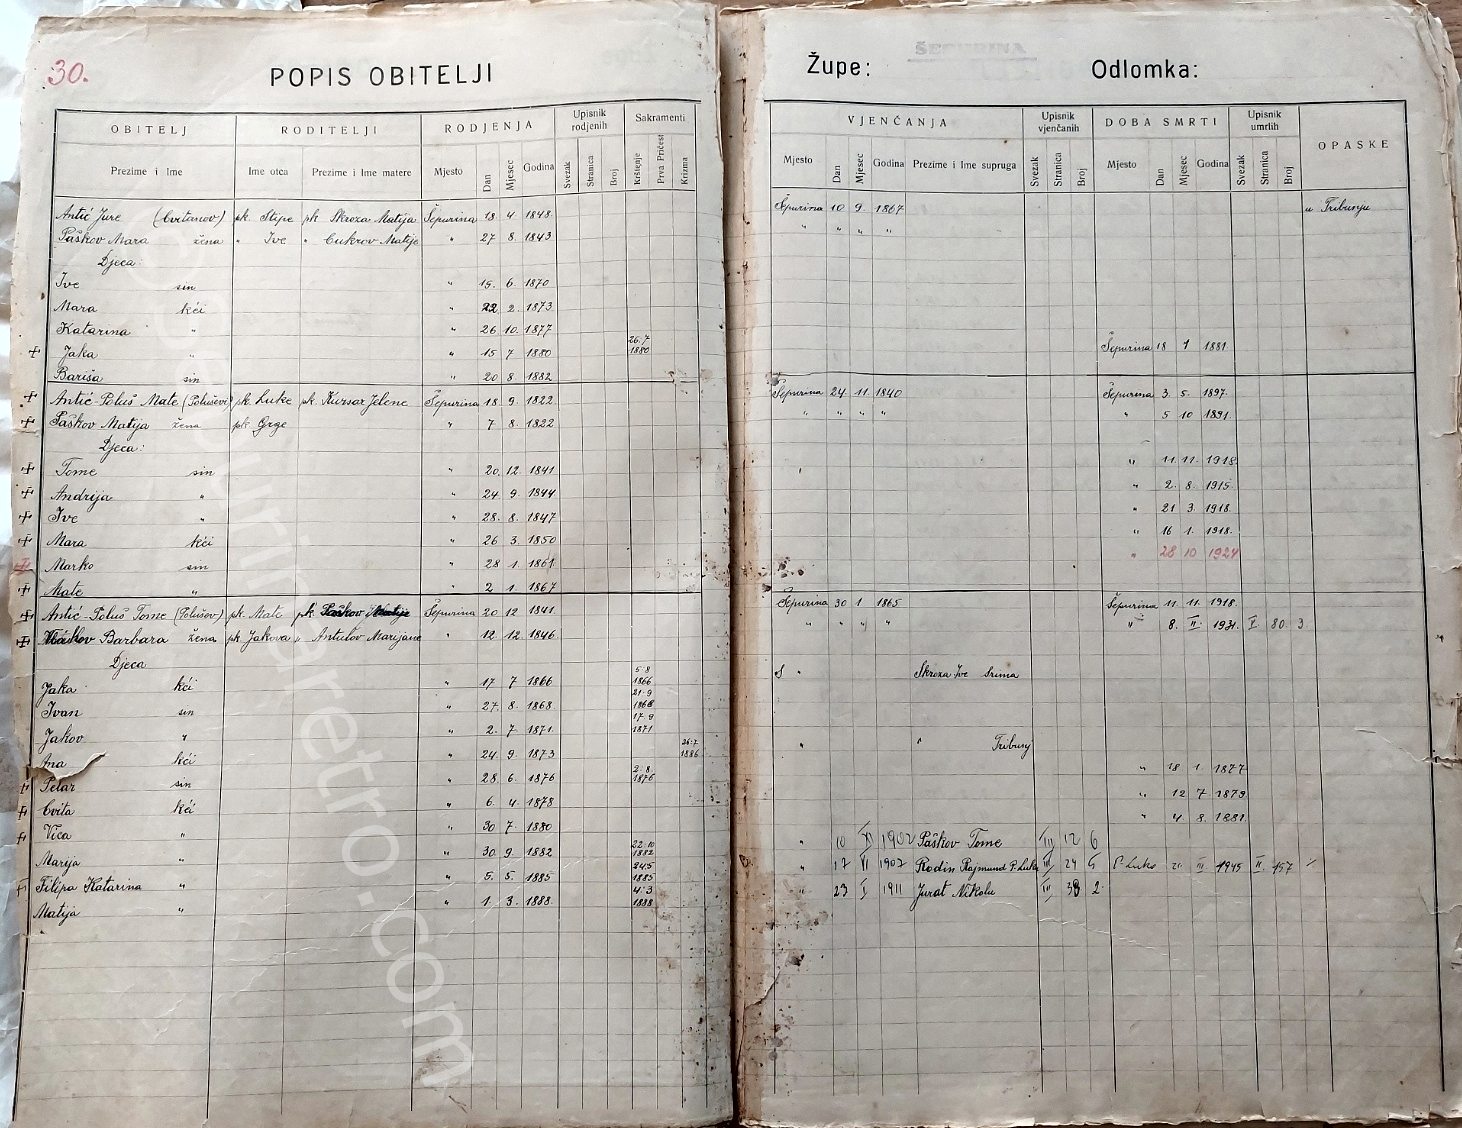 30.
POPIS OBITELJI
Župe: ŠEPURINA
Odlomka:
OBITELJ RODITELJI RODJENJA Upisnik rodjenih Sakramenti VJENČANJA Upisnik vjenčanih DOBA SMRTI Upisnik umrlih OPASKE
Prezime i Ime Ime otca Prezime i Ime matere Mjesto Dan Mjesec Godina Svezak Stranica Broj Krštenje Prva Pričest Krizma Mjesto Dan Mjesec Godina Prezime i Ime supruga Svezak Stranica Broj Mjesto Dan Mjesec Godina Svezak Stranica Broj
Antić Jure (Cvitanov) pk. Stipe pk. Skroza Matija Šepurina 18 4 1848 Šepurina 10 9. 1867 u Tribunju
Paškov Mara žena " Ive " Cukrov Matije " 27 8. 1843 " " " "
Djeca:
Ive sin " 15. 6. 1870
Mara kći " 22 2. 1873
Katarina " " 26 10. 1877
Jaka " " 15 7 1880 26.7 1880 Šepurina 18 1 1881
Bariša sin " 20 8. 1882
Antić-Poluš Mate (Polušev) pk. Luke pk. Kursar Jelene Šepurina 18 9. 1822 Šepurina 24. 11. 1840 Šepurina 3. 5. 1897.
Paškov Matija žena pk. Grge " 7 8. 1822 " " " " " 5 10 1891.
Djeca:
Tome sin " 20. 12. 1841 " 11. 11. 1918.
Andrija " " 24 9. 1844 " 2. 8. 1915.
Ive " " 28. 8. 1847 " 21 3. 1918.
Mara kći " 26 3. 1850 " 16 1. 1918.
Marko sin " 28 1. 1861 " 28 10 1924
Mate " " 2 1. 1867
Antić-Poluš Tome (Polušov) pk. Mate pk. Paškov Matije Šepurina 20 12 1841. Šepurina 30 1 1865 Šepurina 11. 11. 1918.
Barbara žena pk Jakova " Antulov Marijane " 12 12. 1846 " " " " " 8. II 1931. I 80 3
Djeca
Jaka kći " 17 7 1866 5.8 1866 Š " Skroza Ive Srima
Ivan sin " 27. 8. 1868 21.9 1868
Jakov " " 2. 7 1871. 17.9 1871
Ana kći " 24 9. 1873 26.7 1886 " " Tribunj
Petar sin " 28. 6. 1876 2.8. 1876 " 18 1. 1877
Cvita kći " 6. 4. 1878 " 12 7 1879
Vica " " 30 7. 1880 " 4 8. 1881
Marija " " 30. 9. 1882 22.10 1882 " 10 XI 1902 Paškov Tome III 12 6
Filipa Katarina " " 5. 5. 1885 24.5 1885 " 17 II 1907 Rodin Rajmund P. Luka III 24 5 P. Luka 21. III 1945 II 157
Matija " " 1. 3. 1888 4.3 1888 " 23 I 1911 Jurat Nikola III 38 2
sepurinaretro.com